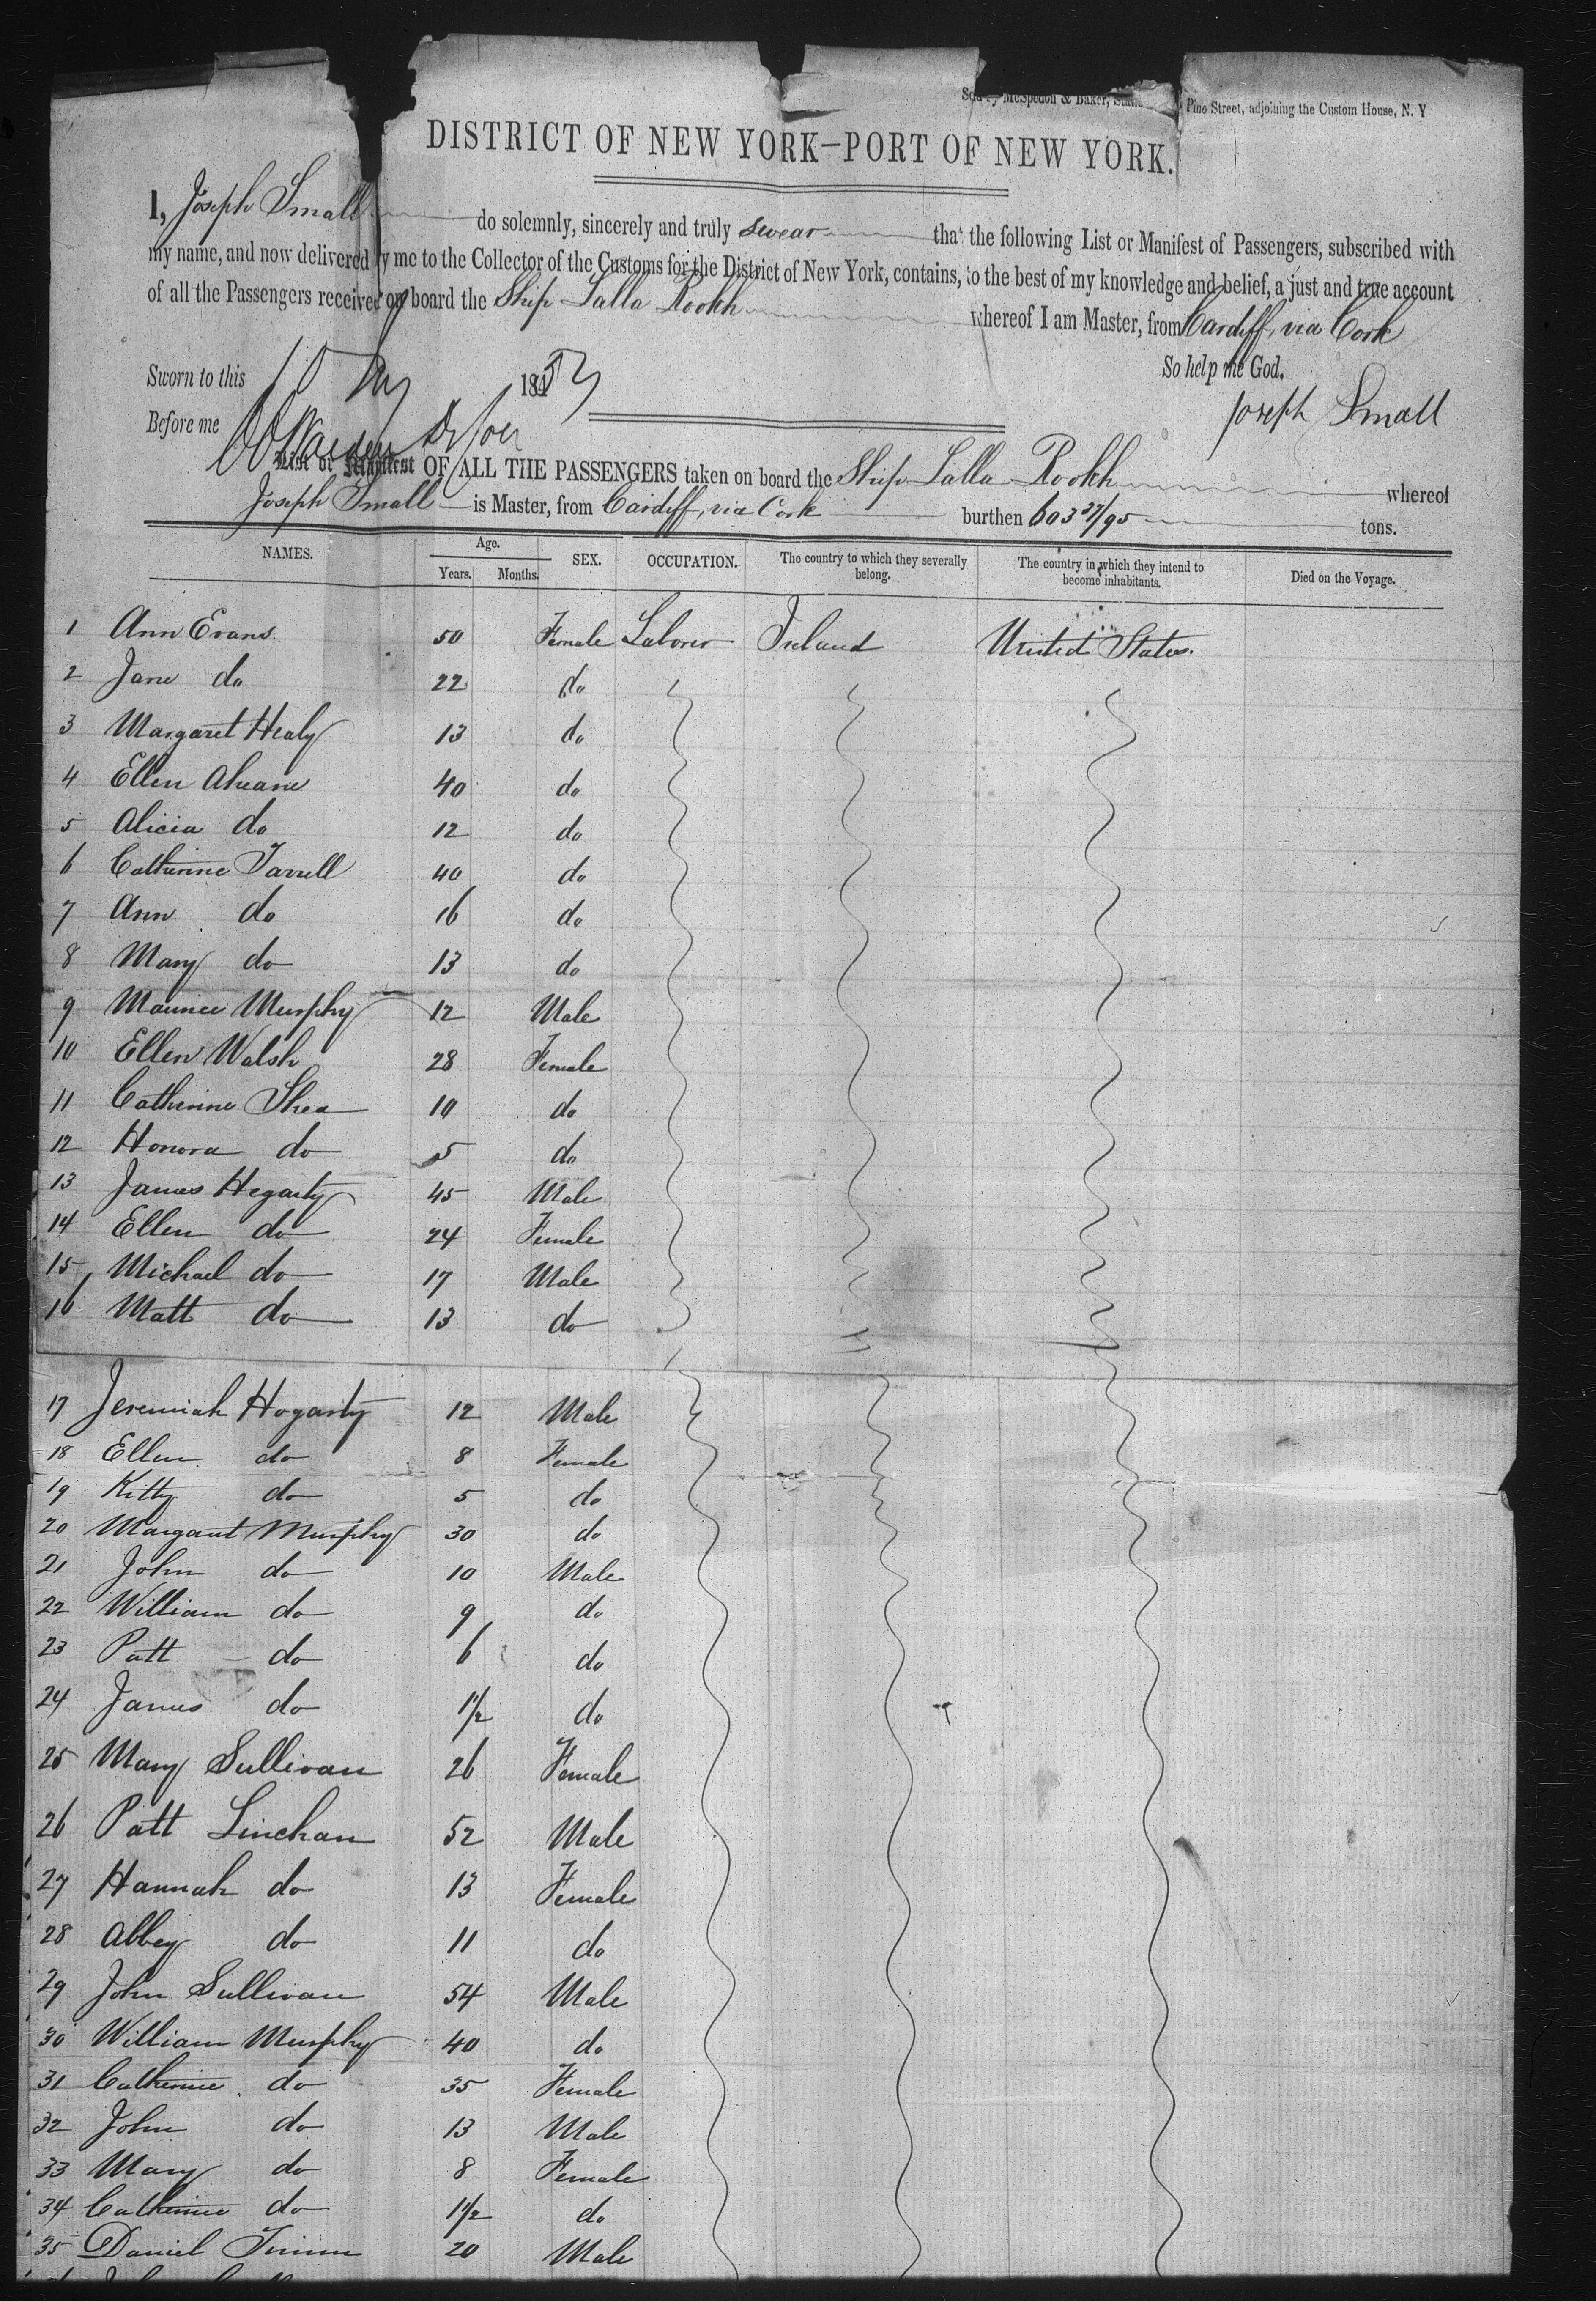 Sold by McSpedon & Baker, Pine Street, adjoining the Custom House, N. Y
DISTRICT OF NEW YORK—PORT OF NEW YORK.
I, Joseph Small do solemnly, sincerely and truly swear that the following List or Manifest of Passengers, subscribed with
my name, and now delivered by me to the Collector of the Customs for the District of New York, contains, to the best of my knowledge and belief, a just and true account
of all the Passengers received on board the Ship Lalla Rookh whereof I am Master, from Cardiff, via Cork
So help me God.
Sworn to this 10 1853
Joseph Small
Before me
List or Manifest OF ALL THE PASSENGERS taken on board the Ship Lalla Rookh whereof
Joseph Small is Master, from Cardiff, via Cork burthen 603 37/95 tons.
NAMES. Age. Years. Months. SEX. OCCUPATION. The country to which they severally belong. The country in which they intend to become inhabitants. Died on the Voyage.
1 Ann Evans 50 Female Laborer Ireland United States.
2 Jane do 22 do
3 Margaret Healy 13 do
4 Ellen Aheane 40 do
5 Alicia do 12 do
6 Catherine Farrell 40 do
7 Ann do 16 do
8 Mary do 13 do
9 Maurice Murphy 12 Male
10 Ellen Walsh 28 Female
11 Catherine Shea 10 do
12 Honora do 5 do
13 James Hegarty 45 Male
14 Ellen do 24 Female
15 Michael do 17 Male
16 Matt do 13 do
17 Jeremiah Hogarty 12 Male
18 Ellen do 8 Female
19 Kitty do 5 do
20 Margaret Murphy 30 do
21 John do 10 Male
22 William do 9 do
23 Patt do 6 do
24 James do 1½ do
25 Mary Sullivan 26 Female
26 Patt Linehan 52 Male
27 Hannah do 13 Female
28 Abbey do 11 do
29 John Sullivan 54 Male
30 William Murphy 40 do
31 Catherine do 35 Female
32 John do 13 Male
33 Mary do 8 Female
34 Catherine do 1½ do
35 Daniel 20 Male